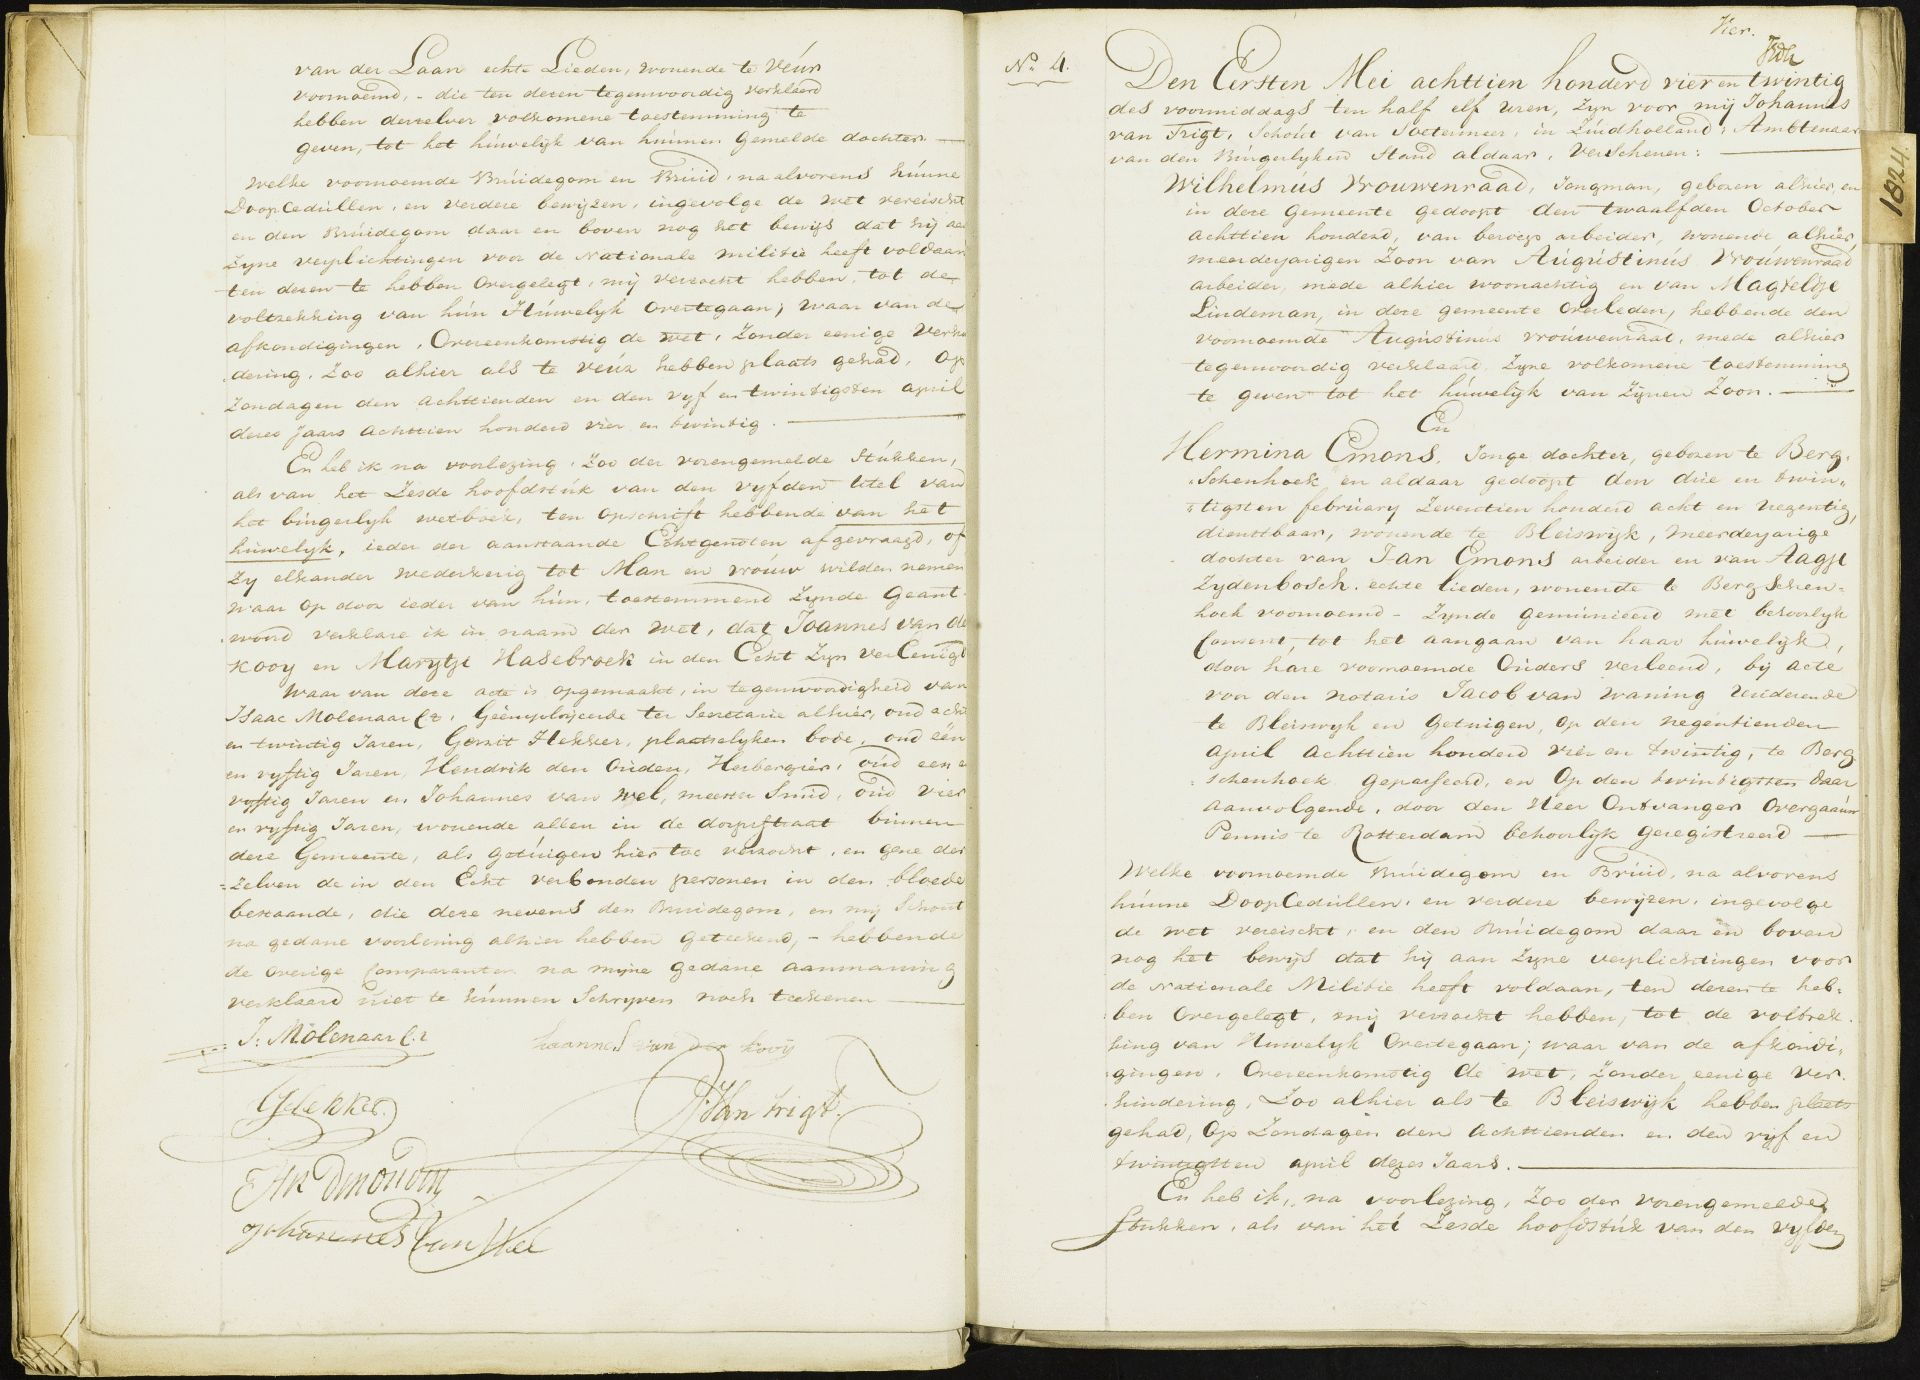 van der Laan echte Lieden, wonende te Veúr
voornoemd, - die ten dezen tegenwoordig verklaard
hebben derzelver volkomene toestemming te
geven, tot het húwelijk van húnnen gemelde dochter.
Welke voornoemde Brúidegom en Brúid, na alvorens húnne
DoopCedúllen, en verdere bewijzen, ingevolge de wet vereischt
en den Brúidegom daar en boven nog het bewijs dat hij aan
Zyne verplichtingen voor de Nationale Militie heeft voldaan
ten dezen te hebben Overgelegt, mij verzocht hebben, tot de
voltrekking van hún Húwelyk Overtegaan; waar van de
afkondigingen, Overeenkomstig de wet, Zonder eenige Verhin
dering, Zoo alhier als te Veúr hebben plaats gehad, Op
Zondagen den achttienden en den vyf en twintigsten april
dezes Jaars achttien honderd vier en twintig.
En heb ik na voorlezing, Zoo der vorengemelde Stúkken,
als van het Zesde hoofdstúk van den vyfden titel van
het búrgerlyk wetboek, ten opschrift hebbende van het
húwelyk, ieder der aanstaande Echtgenoten afgevraagd, of
Zy elkander wederkerig tot Man en vroúw wilden nemen
waar op door ieder van hún, toestemmend Zynde Geant-
woord verklare ik in naam der wet, dat Joannes van de
Kooy en Marytje Hasebroek in den Echt Zyn Vereenigt
Waar van deze acte is opgemaakt, in tegenwoordigheid van
Isaac Molenaar Cz. Geëmployeerde ter Secretarie alhier, oud acht
en twintig Jaren, Gerrit Hekker, plaatselyken bode, oud één
en vyftig Jaren, Hendrik den Ouden, Herbergier, oúd een en
vyftig Jaren en Johannes van Wel, meester Smid, oúd vier
en vyftig Jaren, wonende allen in de dorpstraat binnen
deze Gemeente, als getúigen hier toe verzocht, en gene der
zelven de in den Echt verbonden personen in den bloede
bestaande, die deze nevens den Bruidegom, en mij Schout
na gedane voorlezing alhier hebben geteekend, - hebbende
de overige Comparanten na mijne gedane aanmaning
verklaard niet te kúnnen Schryven noch teekenen
I: Molenaar C.z
Joannes van der Kooij
GHekker.
J. Van Trigt.
Hk Den Ouden
Johannes van Wel
Vier.
No. 4.
Den Eersten Mei achttien honderd vier en twintig
des voormiddags ten half elf uren, Zyn voor mij Johannes
van Trigt, Schoút van Soetermeer, in Zúidholland, Ambtenaar
van den Búrgerlyken Stand aldaar, Verschenen:
Wilhelmús Vrouwenraad, Jongman, geboren alhier, en
in deze Gemeente gedoopt den twaalfden October
achttien honderd, van beroep arbeider, wonende alhier
meerderjarigen Zoon van Augústinús Vroúwenraad
arbeider, mede alhier woonachtig en van Magteldje
Lindeman, in deze gemeente Overleden, hebbende den
voornoemde Augústinús vroúwenraad, mede alhier
tegenwoordig verklaard Zyne volkomene toestemming
te geven tot het húwelyk van Zijnen Zoon.
En
Hermina Emons, Jonge dochter, geboren te Berg-
Schenhoek, en aldaar gedoopt den drie en twin-
tigsten februarij Zeventien honderd acht en negentig,
dienstbaar, wonende te Bleiswyk, meerderjarige
dochter van Jan Emons arbeider en van Aagje
Zydenbosch, echte lieden, wonende te Bergschen-
hoek voornoemd - Zynde gemúnieerd met behoorlyk
Consent, tot het aangaan van haar húwelyk,
door hare voornoemde Oúders verleend, by acte
voor den notaris Jacob van Waning resideerende
te Bleiswyk en Getuigen, Op den negentienden
april achttien honderd vier en twintig, te Berg-
schenhoek gepasseerd, en Op den twintigsten daar
aanvolgende, door den Heer Ontvanger Overgaauw
Pennis te Rotterdam behoorlyk geregistreerd
Welke voornoemde Brúidegom en Brúid, na alvorens
húnne DoopCedúllen, en verdere bewijzen, ingevolge
de wet vereischt, en den Brúidegom daar en boven
nog het bewijs dat hij aan Zyne verplichtingen voor
de Nationale Militie heeft voldaan, ten dezen te heb-
ben Overgelegt, mij verzocht hebben, tot de voltrek-
king van Huwelyk Overtegaan; waar van de afkondi-
gingen, Overeenkomstig de wet, Zonder eenige Ver-
hindering, Zoo alhier als te Bleiswyk hebben plaats
gehad, Op Zondagen den achttienden en den vijf en
twintigsten april dezes Jaars.
En heb ik, na voorlezing, Zoo der vorengemelde
Stukken, als van het Zesde hoofdstúk van den vyfden
1824.